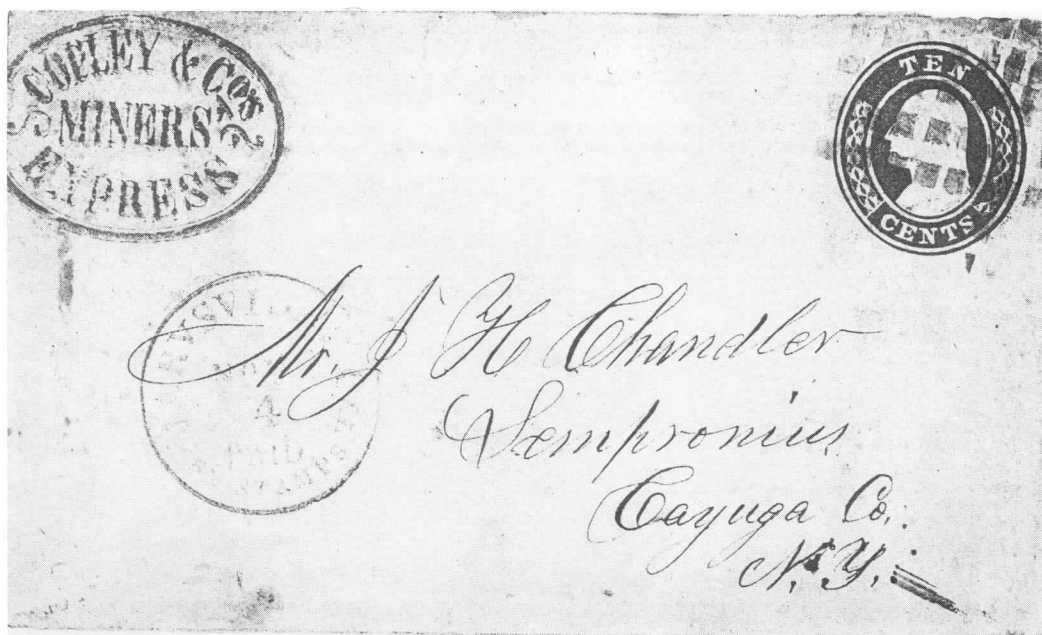 COPLEY & CO'S
MINERS'
EXPRESS
TEN
CENTS
4
PAID
Mr. J H Chandler
Sempronius
Cayuga Co.
N.Y.